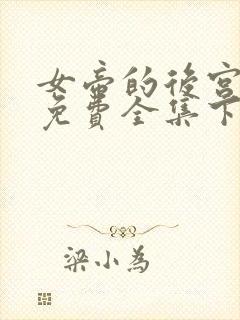 女帝的後宮
免費全集下
梁小為